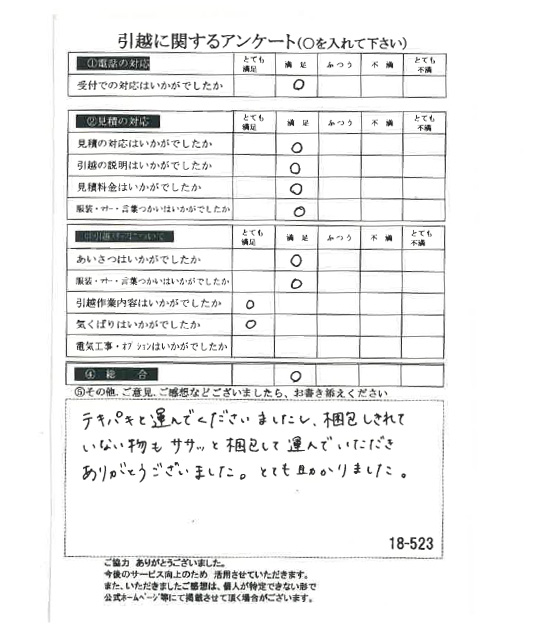 引越に関するアンケート(〇を入れて下さい)
①電話の対応 とても満足 満足 ふつう 不満 とても不満
受付での対応はいかがでしたか 〇
②見積の対応 とても満足 満足 ふつう 不満 とても不満
見積の対応はいかがでしたか 〇
引越の説明はいかがでしたか 〇
見積料金はいかがでしたか 〇
服装・マナー・言葉つかいはいかがでしたか 〇
とても満足 満足 ふつう 不満 とても不満
あいさつはいかがでしたか 〇
服装・マナー・言葉つかいはいかがでしたか 〇
引越作業内容はいかがでしたか 〇
気くばりはいかがでしたか 〇
電気工事・オプションはいかがでしたか
④総合 〇
⑤その他、ご意見、ご感想などございましたら、お書き添えください
テキパキと運んでくださいましたし、梱包しきれて
いない物もササッと梱包して運んでいただき
ありがとうございました。とても助かりました。
18-523
ご協力 ありがとうございました。
今後のサービス向上のため 活用させていただきます。
また、いただきましたご感想は、個人が特定できない形で
公式ホームページ等にて掲載させて頂く場合がございます。